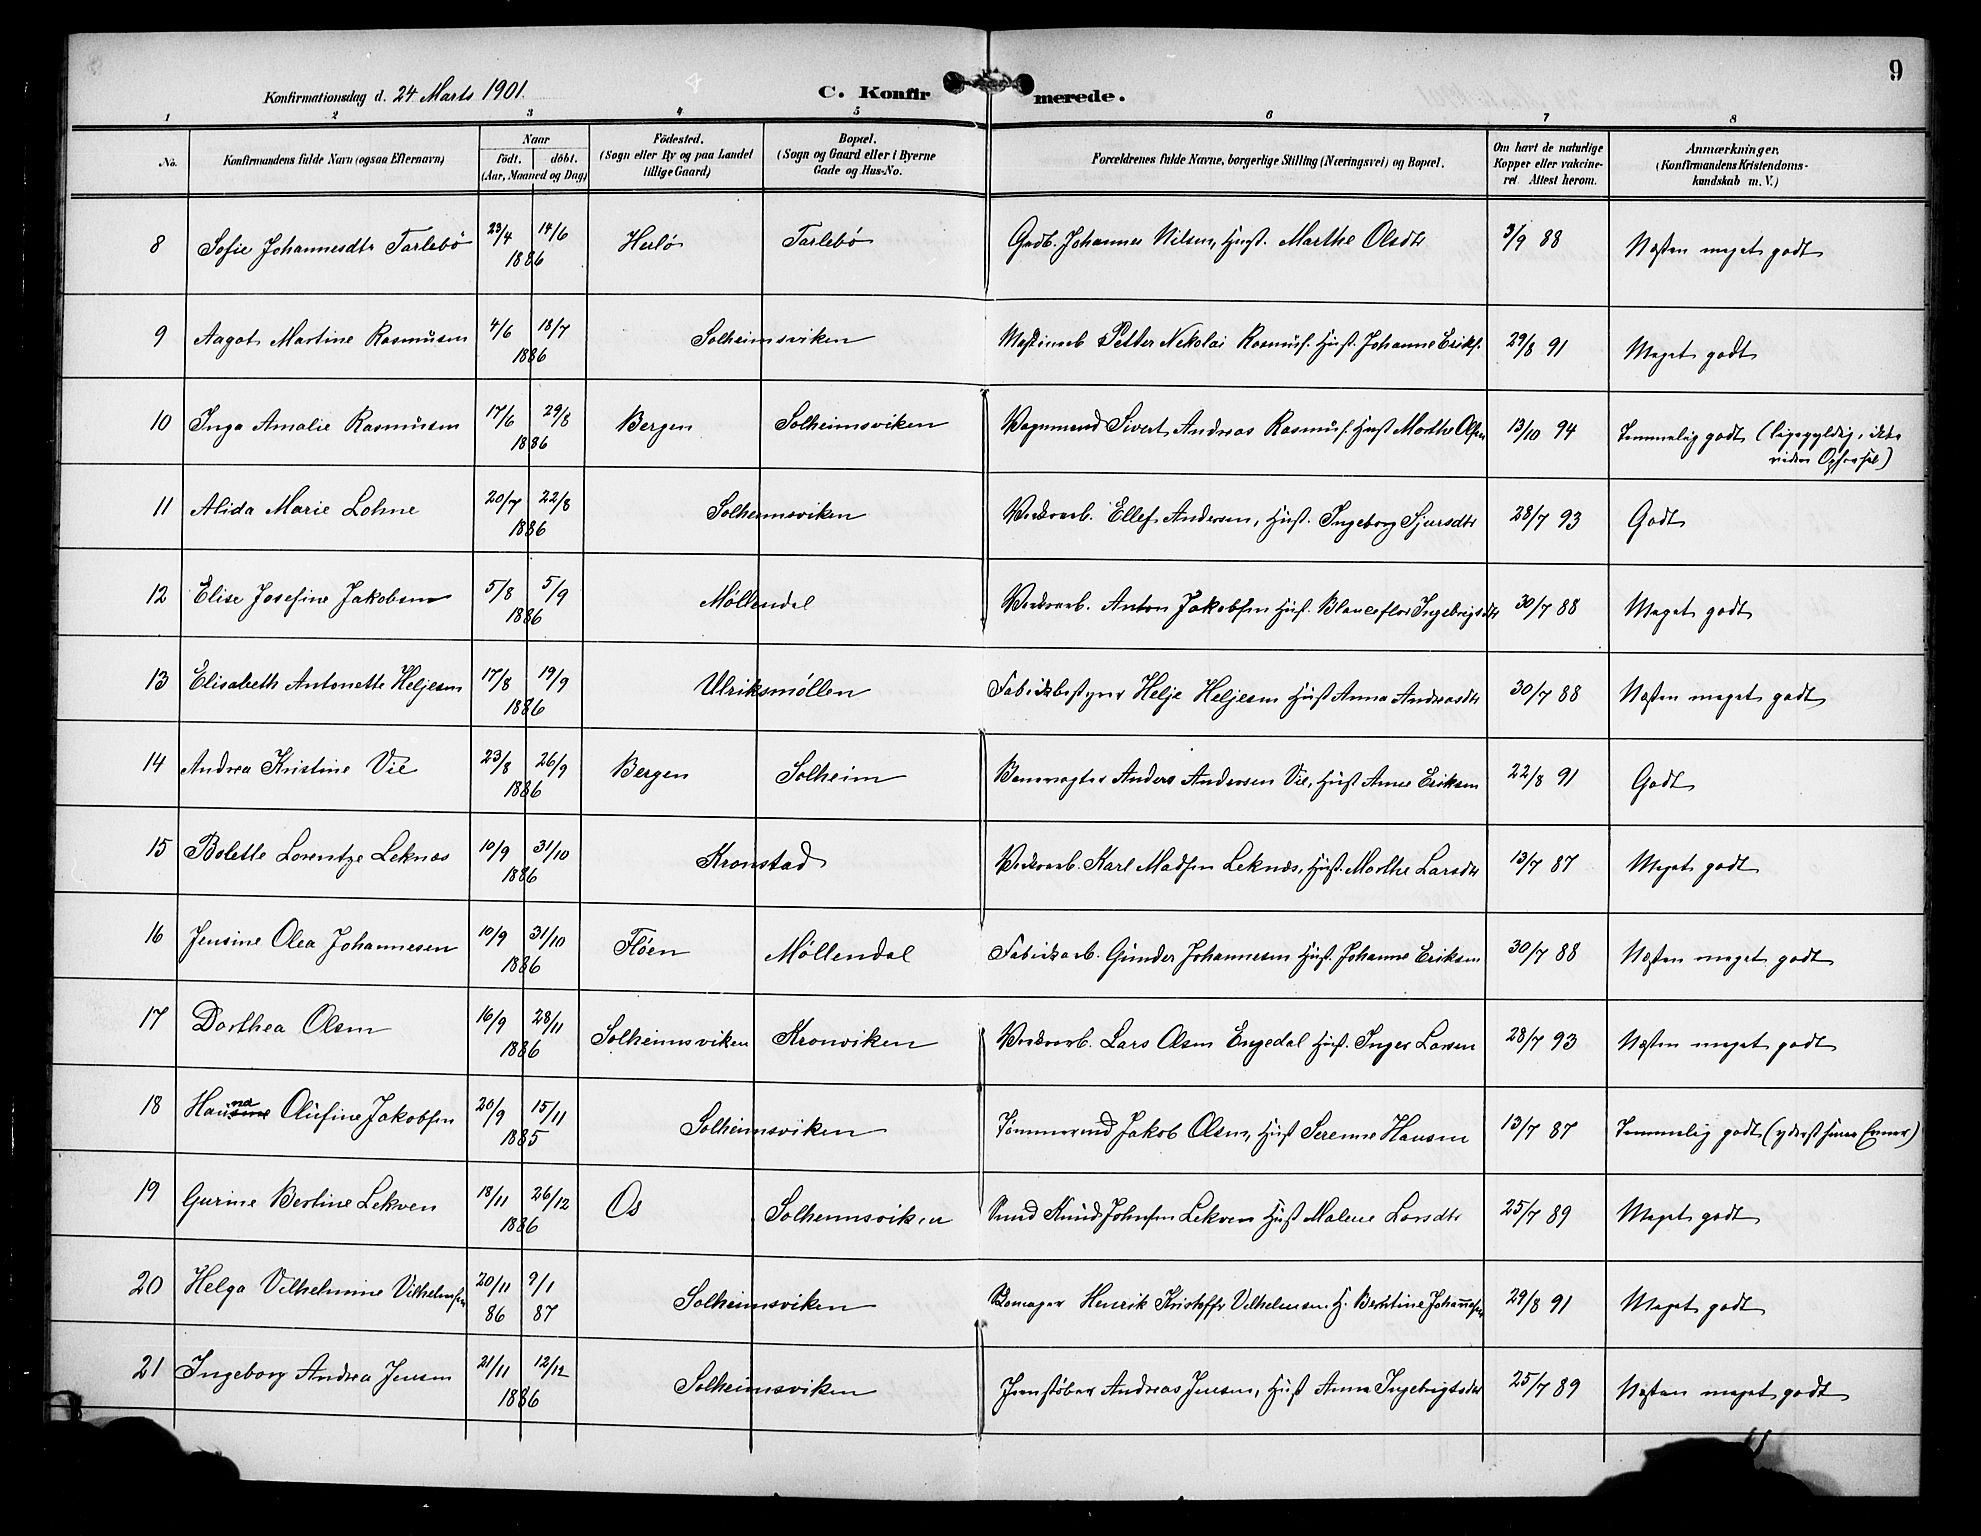 9
Konfirmationsdag d. 24 Marts 1901. C. Konfirmerede.
1 2 3 4 5 6 7 8
No. Konfirmandens fulde Navn (ogsaa Efternavn) Naar födt. döbt. (Aar, Maaned og Dag) Födested. (Sogn eller By og paa Landet tillige Gaard) Bopæl. (Sogn og Gaard eller i Byerne Gade og Hus-No. Forældrenes fulde Navne, borgerlige Stilling (Næringsvei) og Bopæl. Om havt de naturlige Kopper eller vakcineret. Attest herom. Anmærkninger. (Konfirmandens Kristendomskundskab m. V.)
8 Sofie Johannesdtr Tarlebö 23/4 14/6 1886 Herlö Tarlebö Gadb. Johannes Nilsen, Hust. Marthe Olsdtr 3/9 88 Næsten meget godt
9 Aagot Martine Rasmüsen 4/6 18/7 1886 Solheimsviken Petter Nekolai Rasmüs. Hust. Johanne Eriks. 29/8 91 Meget godt
10 Inga Amalie Rasmüsen 17/6 29/8 1886 Bergen Solheimsviken Vognmand Sivert Andreas Rasmüs. Hust Marthe Olsen 13/10 94 Temmelig godt (ligegyldig, ikke
11 Alida Marie Lohne 20/7 22/8 1886 Solheimsviken Verksarb. Ellef Andersen, Hust. Ingeborg Sjursdtr 28/7 93 Godt
12 Elise Josefine Jakobsen 5/8 5/9 1886 Möllendal Verksarb. Anton Jakobsen Hust. Blanceflor Ingebrigsdtr 30/7 88 Meget godt
13 Elisabeth Antonette Heljesen 17/8 19/9 1886 Ulriksmöllen Fabrikbestyrer Helje Heljesen Hust Anna Andreasdtr 30/7 88 Næsten meget godt
14 Andrea Kristine Vie 23/8 26/9 1886 Bergen Solheim Banevogter Anders Andersen Vie, Hust Anne Eriksen 22/8 91 Godt
15 Bolette Lorentze Leknæs 10/9 31/10 1886 Kronstad Verksarb. Karl Madsen Leknæs, Hust. Marthe Larsdtr 13/7 87 Meget godt
16 Jensine Olea Johannesen 10/9 31/10 1886 Flöen Möllendal Fabriksarb. Günder Johannesen Hust. Johanne Eriksen 30/7 88 Næsten meget godt
17 Dorthea Olsen 16/9 28/11 1886 Solheimsviken Kronviken Verksarb. Lars Olsen Engedal Hust. Inger Larsen 28/7 93 Næsten meget godt
18 Hanna Olüfine Jakobsen 20/9 15/11 1885 Solheimsviken Tömmermd Jakob Olsen, Hust Serenne Hansen 13/7 87 Temmelig godt (yderst svare Evner)
19 Gurine Bertine Lekven 18/11 26/12 1886 Os Solheimsviken Knüd Johnsen Lekven Hust Malene Larsdtr 25/7 89 Meget godt
20 Helga Vilhelmine Vilhelmsen 20/11 86 9/1 87 Solheimsviken Henrik Kristoffr Vilhelmsen H. Berntine Johannesen 29/8 91 Meget godt
21 Ingeborg Andrea Jensen 21/11 12/12 1886 Solheimsviken Jernstöber Andreas Jensen, Hust Anna Ingebrigtsdtr 25/7 89 Næsten meget godt